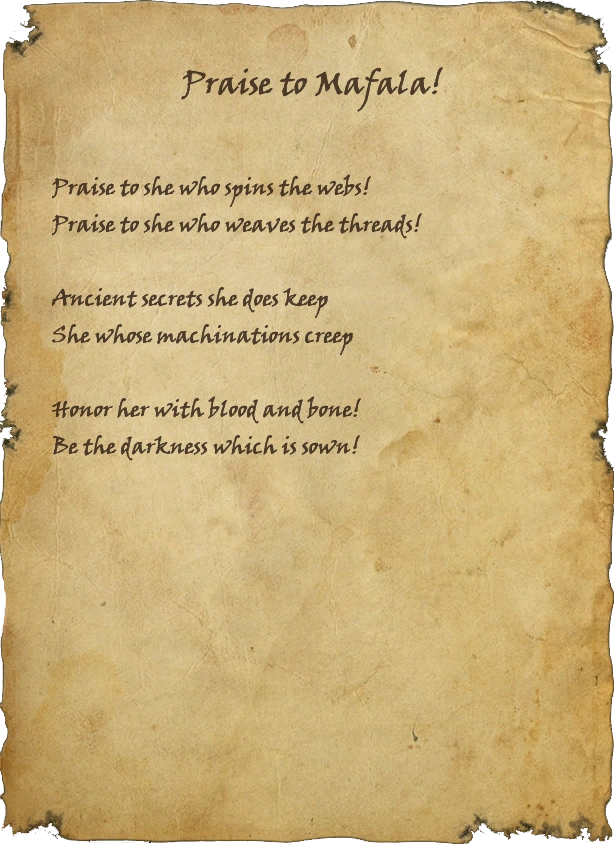 Praise to Mafala!
Praise to she who spins the webs!
Praise to she who weaves the threads!
Ancient secrets she does keep
She whose machinations creep
Honor her with blood and bone!
Be the darkness which is sown!